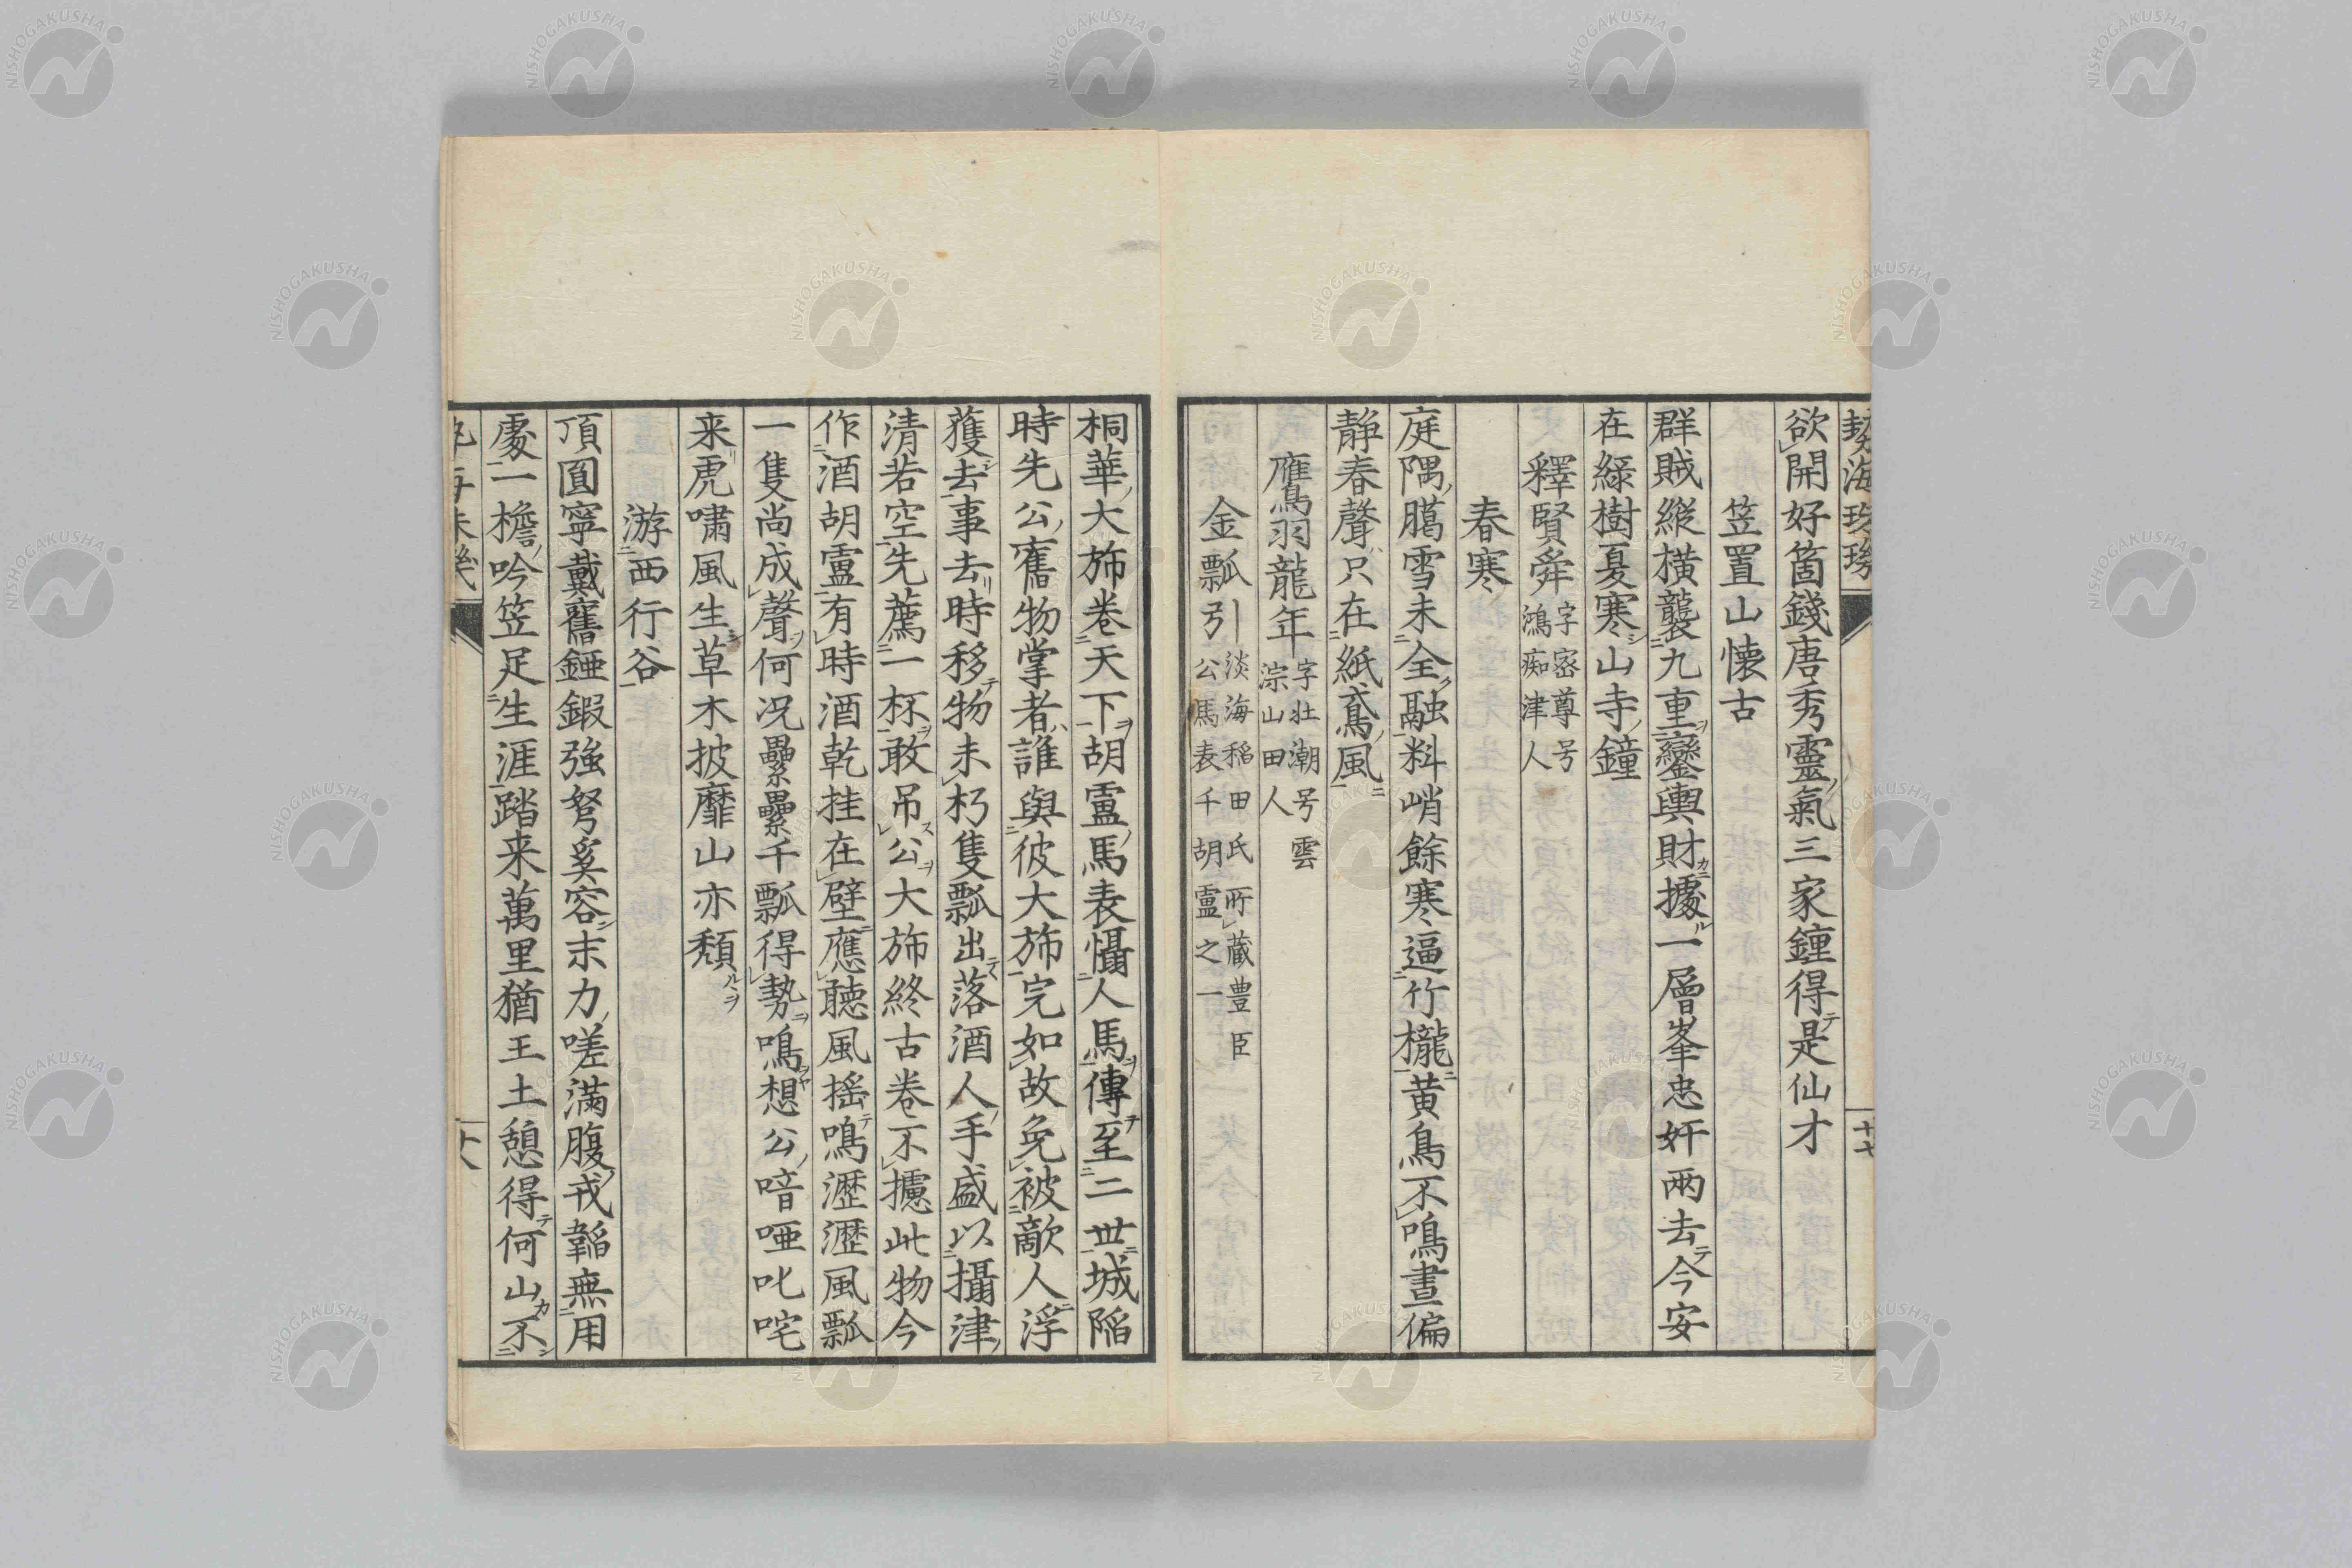 欲開好箇錢唐秀靈氣三家鍾得是仙才
笠置山懐古
群賊縱橫襲九重鑾輿財據一層峯忠奸兩去今安
在綠樹夏寒山寺鐘
釋賢舜 字密尊号
鴻痴津人
春寒
庭隅臈雪未全融料峭餘寒逼竹櫳黄鳥不鳴晝偏
静春聲只在紙鳶風
鴈羽龍年 字壮潮号雲
淙山田人
金瓢引 淡海稻田氏所藏豊臣
公馬表千胡盧之一
桐華大斾卷天下胡盧馬表懾人馬傳至二世城陥
時先公舊物掌者誰與彼大斾完如故免被敵人浮
獲去事去時移物未朽隻瓢出落酒人手盛以攝津
清若空先薦一杯敢吊公大斾終古卷不攄此物今
作酒胡盧有時酒乾挂在壁應聴風搖鳴瀝瀝風瓢
一隻尚成聲何况纍纍千瓢得勢鳴想公喑啞叱咤
来虎嘯風生草木披靡山亦頽
游西行谷
頂圓寧戴舊錏鍜強弩奚容末力嗟滿腹戎韜無用
處一檐吟笠足生涯踏来萬里猶王土憩得何山不
十七